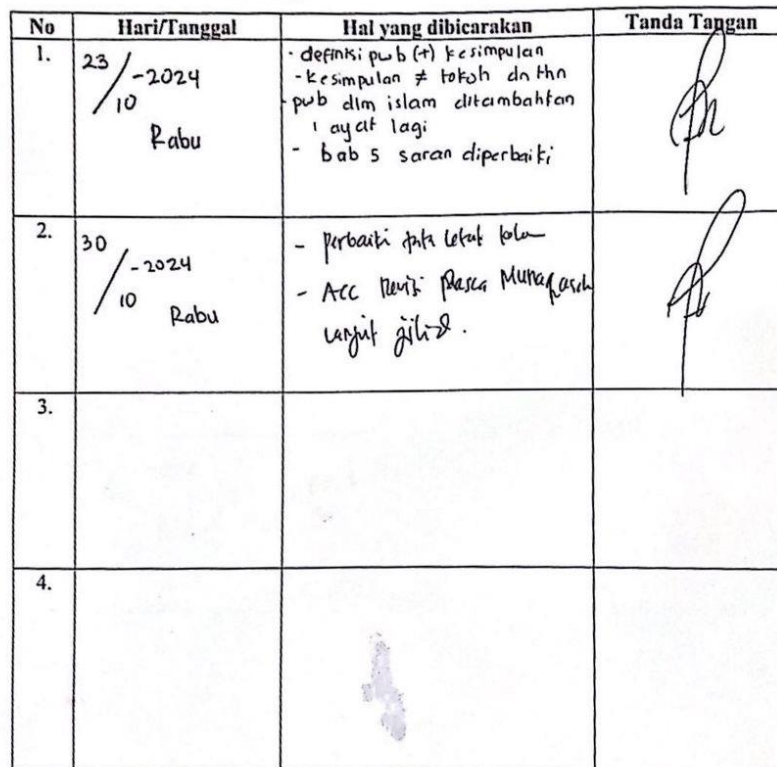 No Hari/Tanggal Hal yang dibicarakan Tanda Tangan
1.
23/10-2024
Rabu
- definisi pwb (+) kesimpulan
- kesimpulan ≠ tokoh dn thn
- pwb dlm islam ditambahkan
1 ayat lagi
- bab 5 saran diperbaiki
2.
30/10-2024
Rabu
- perbaiki letak
- Acc Revisi Pasca Munaqasah
lanjut jilid.
3.
4.